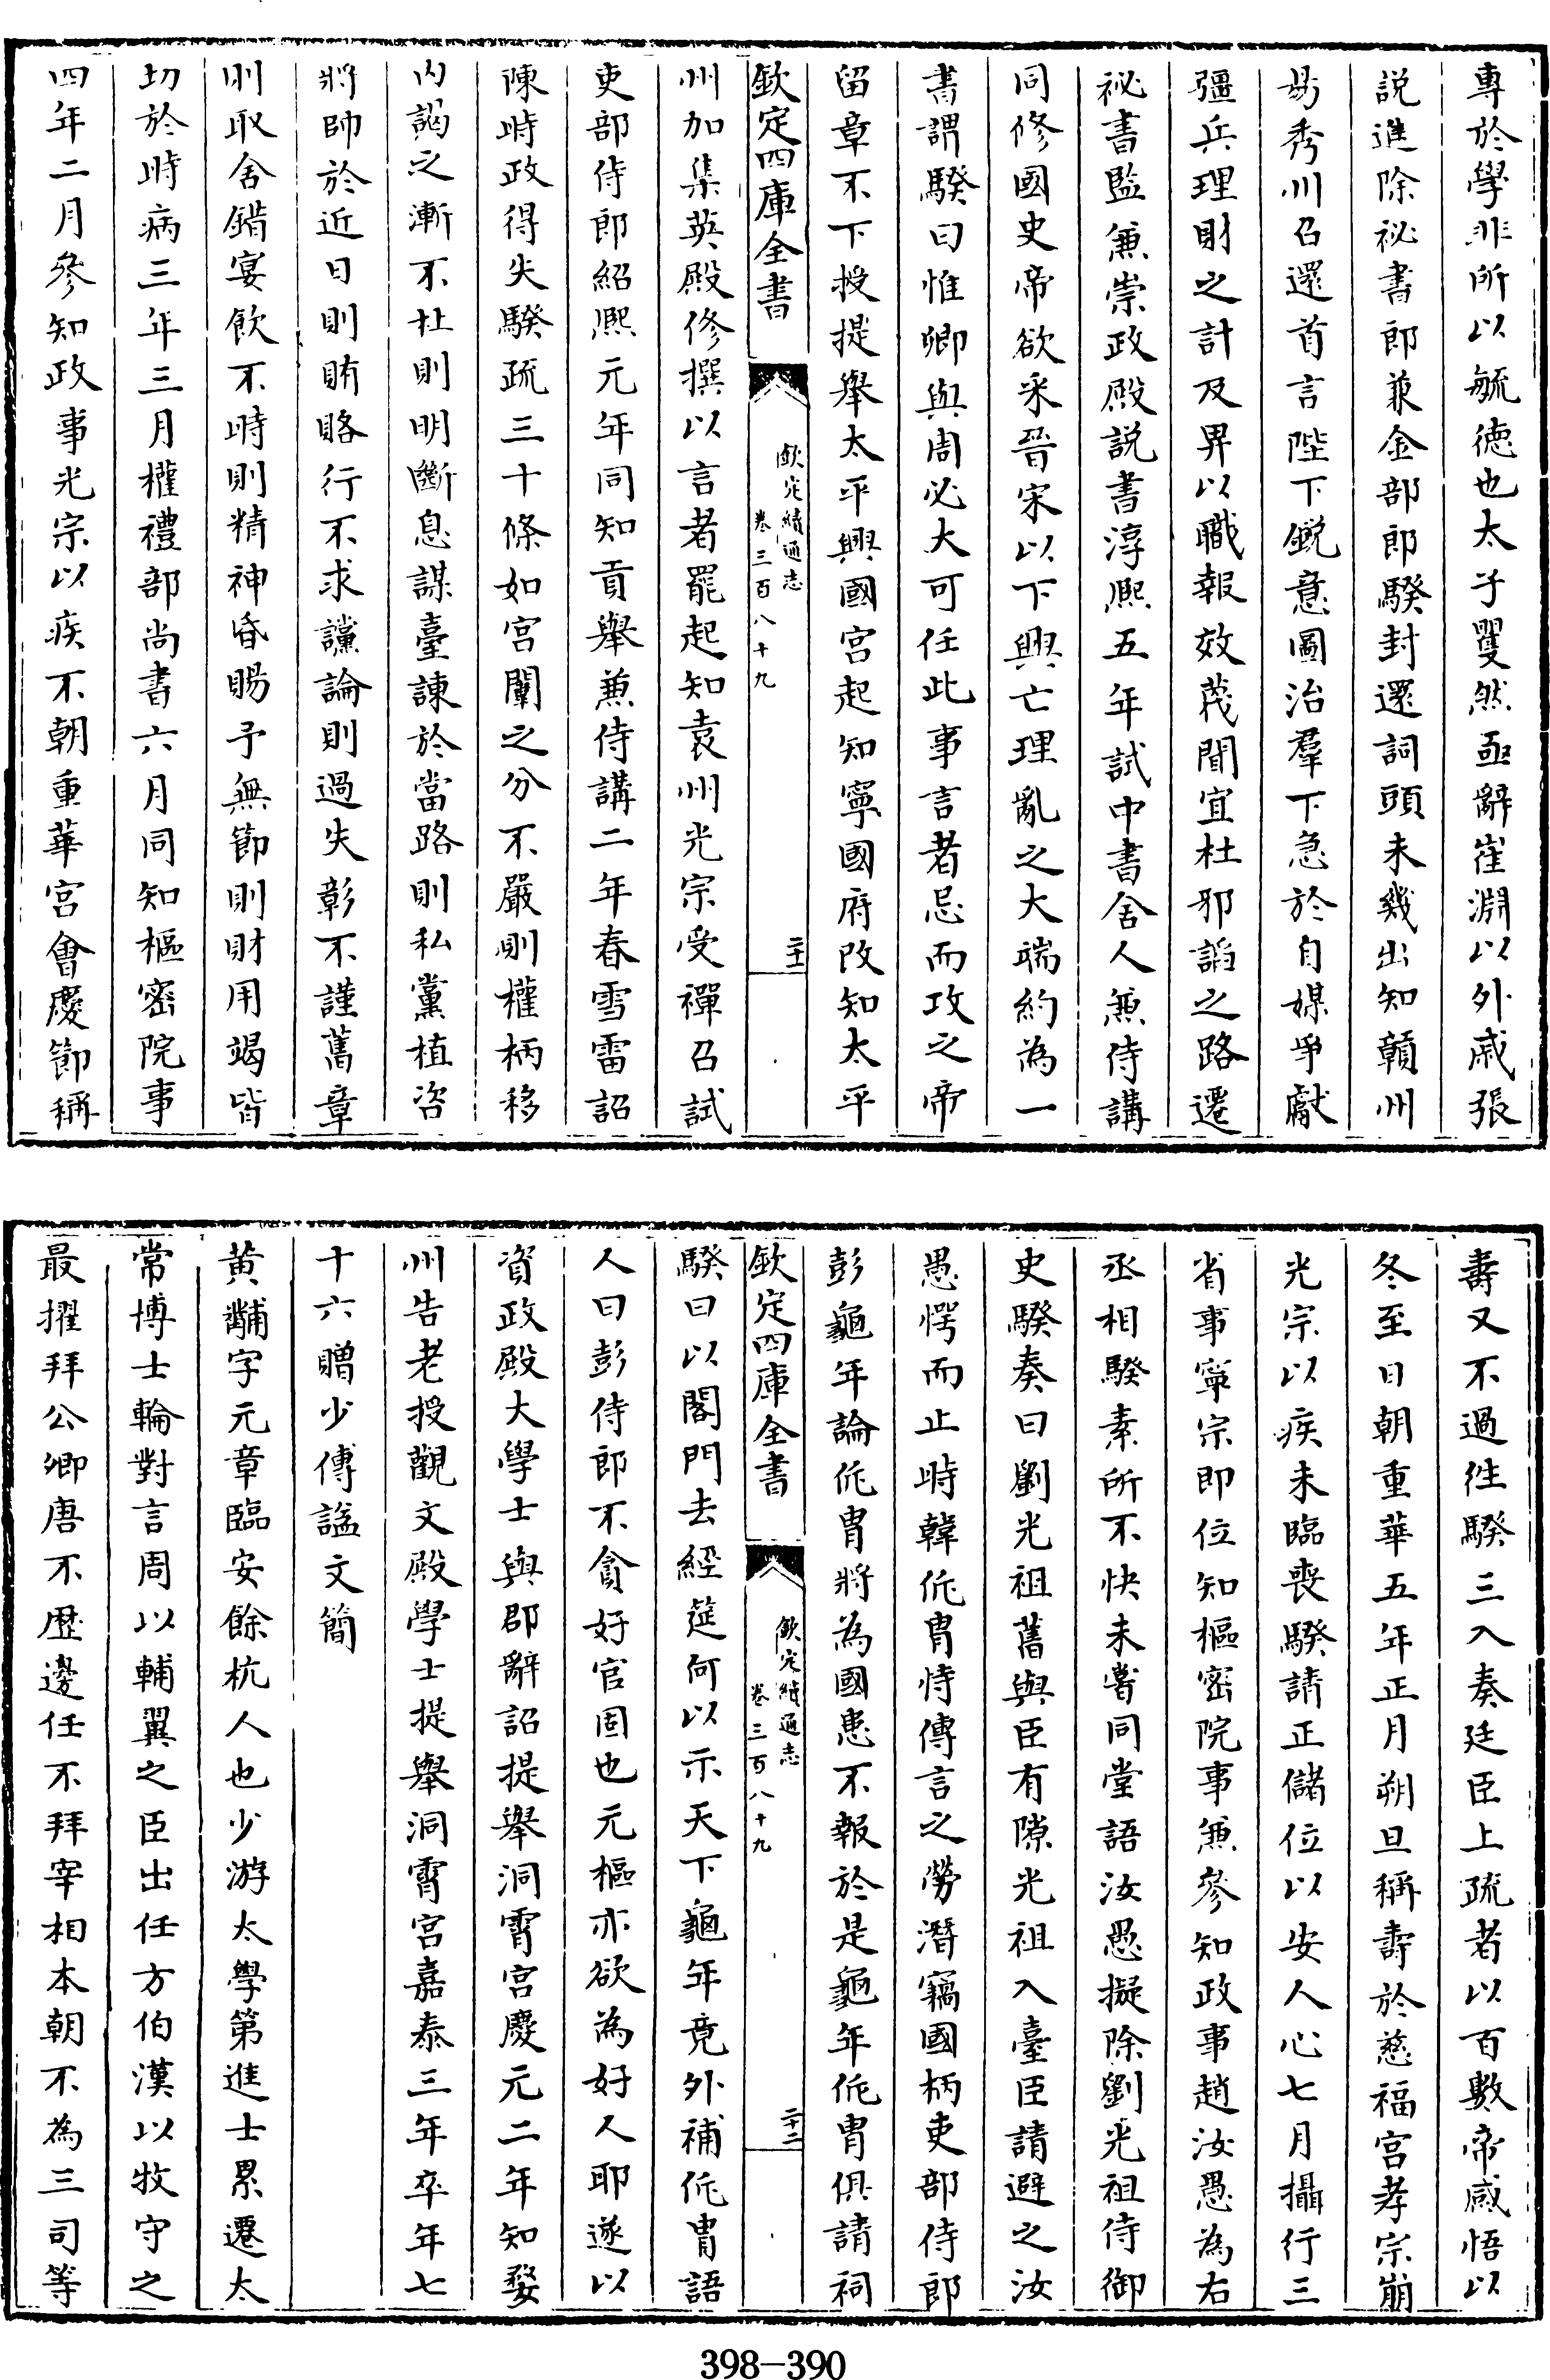 專於學非所以毓德也太子矍然亟辭崔淵以外戚張
説進除祕書郎兼金部郎騤封還詞頭未幾出知贛州
易秀州召還首言陛下鋭意圖治羣下急於自媒爭獻
彊兵理財之計及畀以職報效蔑聞宜杜邪諂之路遷
祕書監兼崇政殿説書淳熙五年試中書舍人兼侍講
同修國史帝欲采晉宋以下興亡理亂之大端約為一
書謂騤曰惟卿與周必大可任此事言者忌而攻之帝
留章不下授提舉太平興國宫起知寧國府改知太平
欽定四庫全書
欽定續通志
卷三百八十九
二十一
州加集英殿修撰以言者罷起知袁州光宗受禪召試
吏部侍郎紹熙元年同知貢舉兼侍講二年春雪雷詔
陳時政得失騤疏三十條如宫闈之分不嚴則權柄移
内謁之漸不杜則明斷息謀臺諫於當路則私黨植咨
將帥於近日則賄賂行不求讜論則過失彰不謹舊章
則取舍錯宴飲不時則精神昏賜予無節則財用竭皆
切於時病三年三月權禮部尚書六月同知樞密院事
四年二月參知政事光宗以疾不朝重華宫會慶節稱
壽又不過徃騤三入奏廷臣上疏者以百數帝感悟以
冬至日朝重華五年正月朔旦稱壽於慈福宫孝宗崩
光宗以疾未臨喪騤請正儲位以安人心七月攝行三
省事寧宗即位知樞密院事兼參知政事趙汝愚為右
丞相騤素所不快未嘗同堂語汝愚擬除劉光祖侍御
史騤奏曰劉光祖舊與臣有隙光祖入臺臣請避之汝
愚愕而止時韓侂胄恃傳言之勞潛竊國柄吏部侍郎
彭龜年論侂胄將為國患不報於是龜年侂胄俱請祠
欽定四庫全書
欽定續通志
卷三百八十九
二十二
騤曰以閣門去經筵何以示天下龜年竟外補侂胄語
人曰彭侍郎不貪好官固也元樞亦欲為好人耶遂以
資政殿大學士與郡辭詔提舉洞霄宫慶元二年知婺
州告老授觀文殿學士提舉洞霄宫嘉泰三年卒年七
十六贈少傅諡文簡
黄黼字元章臨安餘杭人也少游太學第進士累遷太
常博士輪對言周以輔翼之臣出任方伯漢以牧守之
最擢拜公卿唐不歴邊任不拜宰相本朝不為三司等
398-390